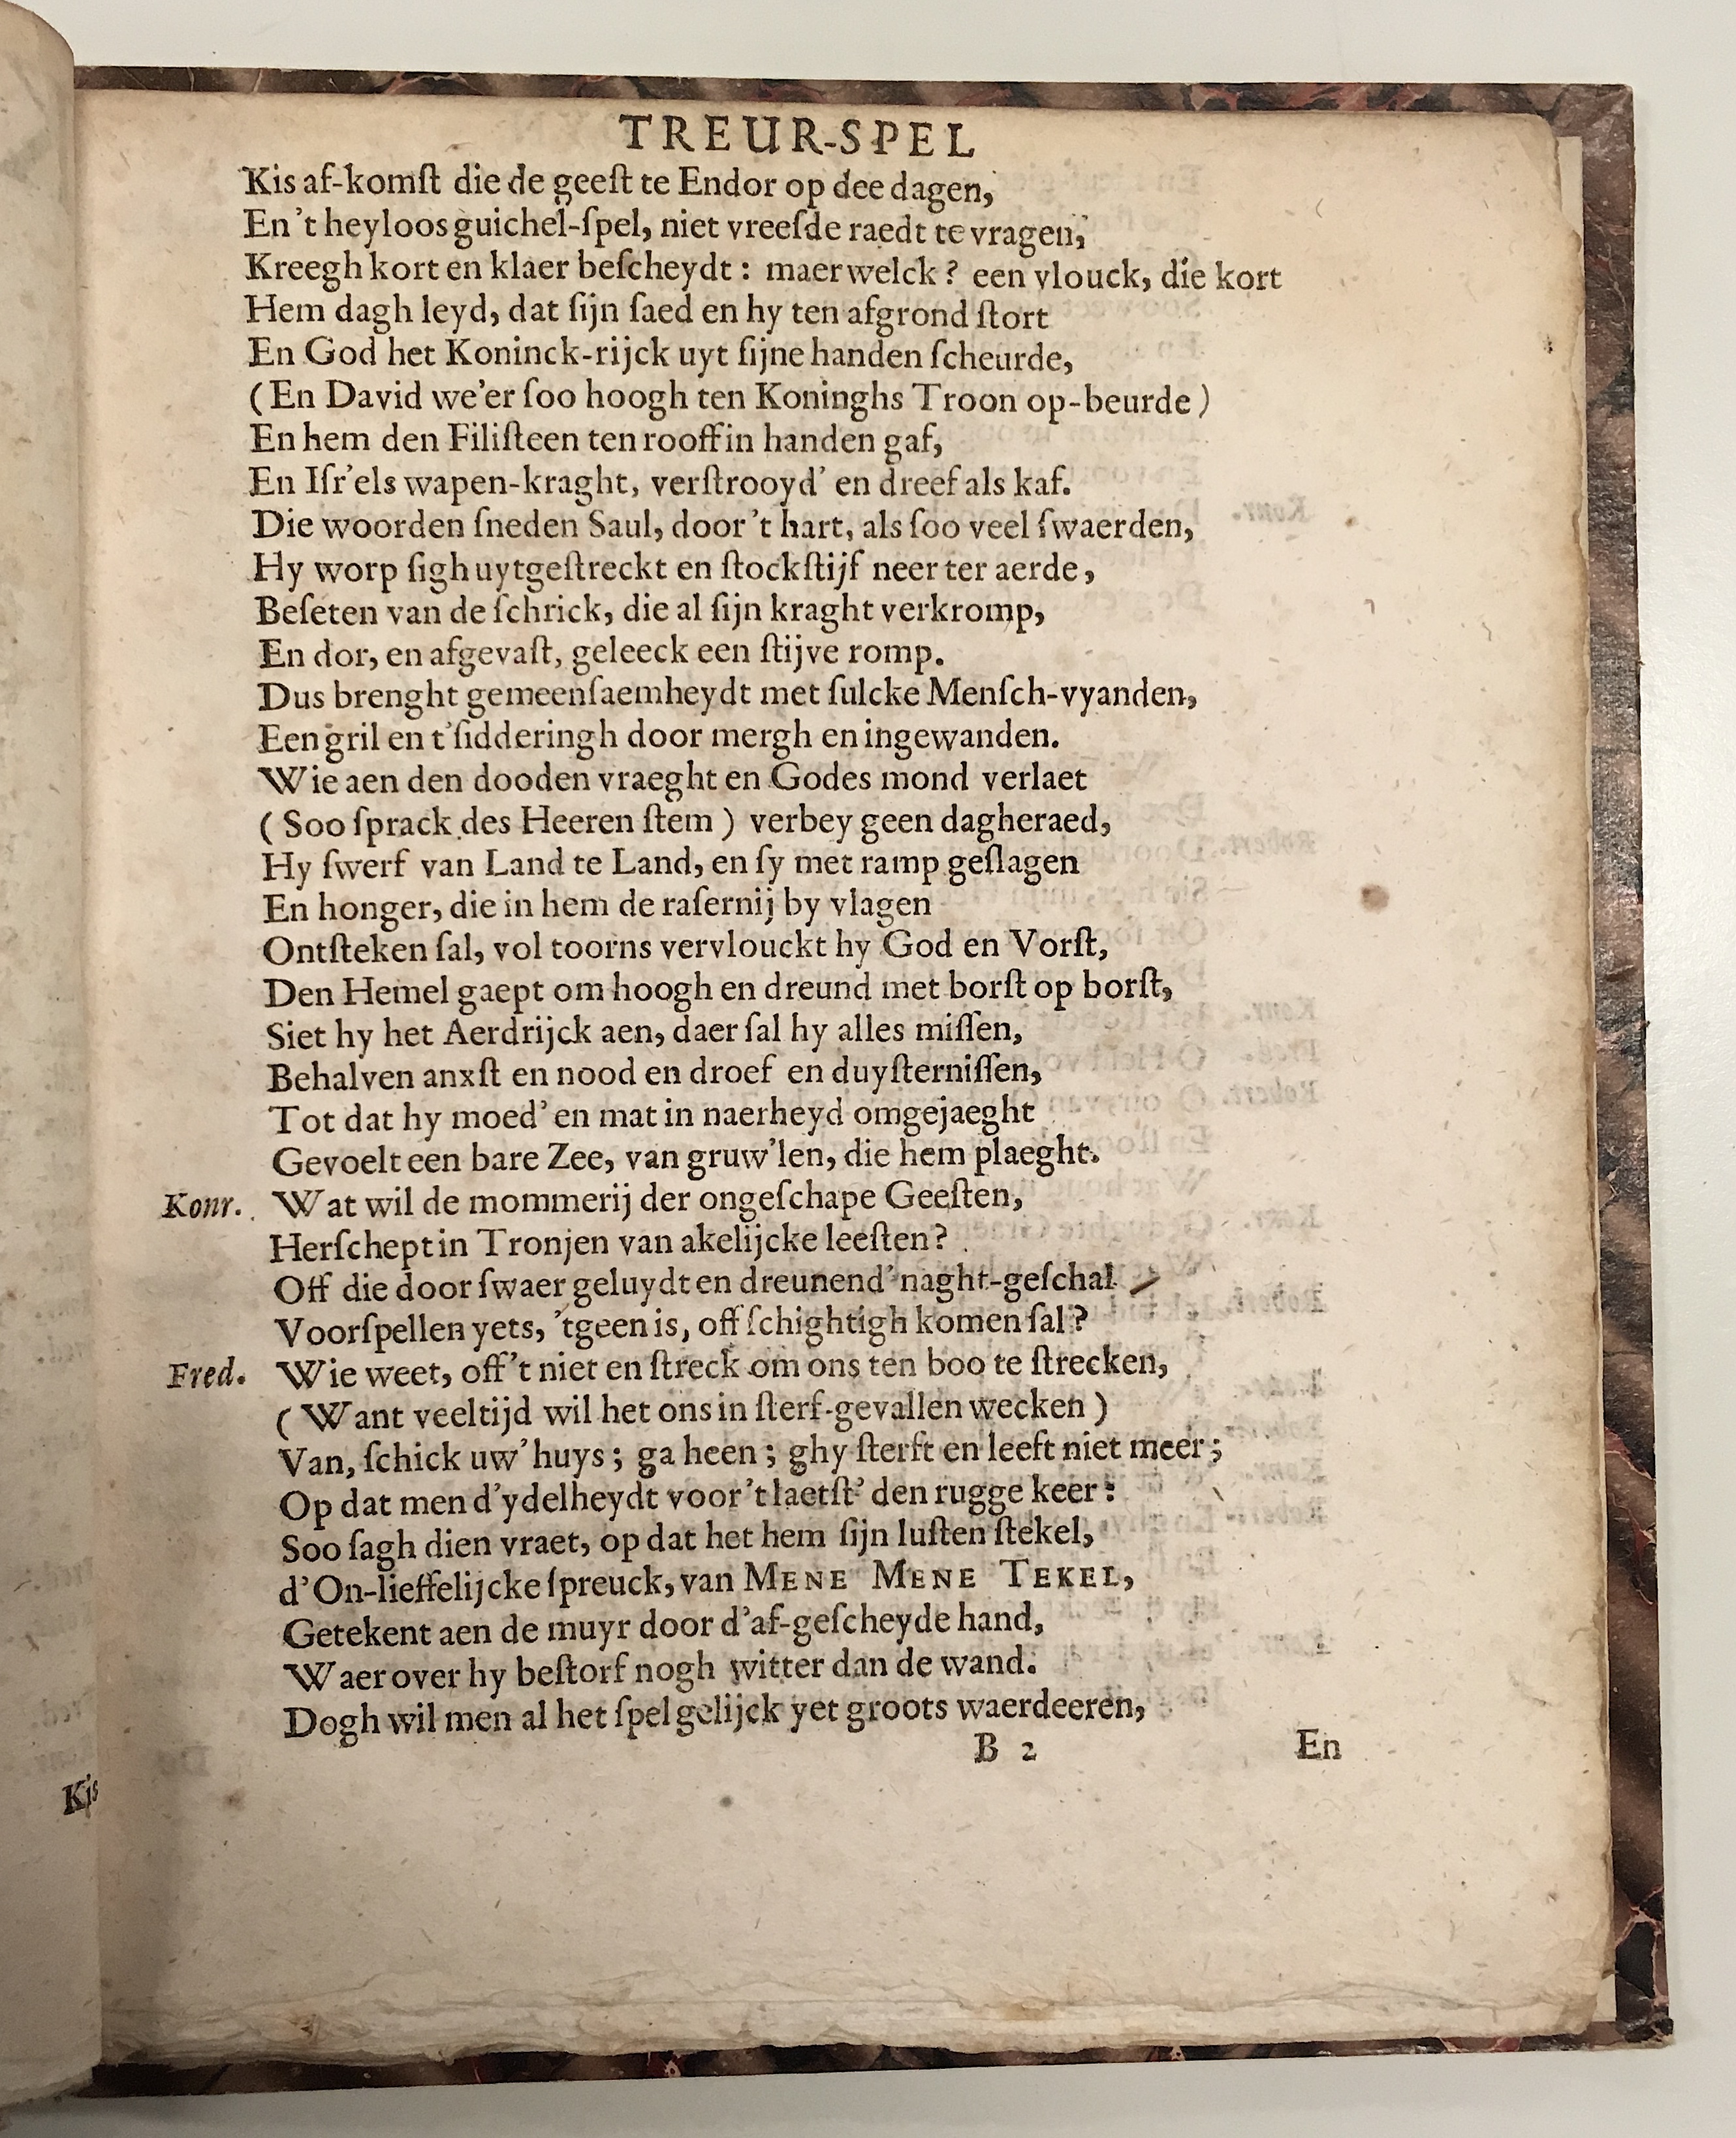 TREUR-SPEL
Kis af-komſt die de geeſt te Endor op dee dagen,
En 't heyloos guichel-ſpel, niet vreeſde raedt te vragen,
Kreegh kort en klaer beſcheydt : maer welck ? een vlouck, die kort
Hem dagh leyd, dat ſijn ſaed en hy ten afgrond ſtort
En God het Koninck-rijck uyt ſijne handen ſcheurde,
( En David we'er ſoo hoogh ten Koninghs Troon op-beurde )
En hem den Filiſteen ten rooff in handen gaf,
En Iſr'els wapen-kraght, verſtrooyd' en dreef als kaf.
Die woorden ſneden Saul, door 't hart, als ſoo veel ſwaerden,
Hy worp ſigh uytgeſtreckt en ſtockſtijf neer ter aerde,
Beſeten van de ſchrick, die al ſijn kraght verkromp,
En dor, en afgevaſt, geleeck een ſtijve romp.
Dus brenght gemeenſaemheydt met ſulcke Menſch-vyanden,
Een gril en t'ſidderingh door mergh en ingewanden.
Wie aen den dooden vraeght en Godes mond verlaet
( Soo ſprack des Heeren ſtem ) verbey geen dagheraed,
Hy ſwerf van Land te Land, en ſy met ramp geſlagen
En honger, die in hem de raſernij by vlagen
Ontſteken ſal, vol toorns vervlouckt hy God en Vorſt,
Den Hemel gaept om hoogh en dreund met borſt op borſt,
Siet hy het Aerdrijck aen, daer ſal hy alles miſſen,
Behalven anxſt en nood en droef en duyſterniſſen,
Tot dat hy moed' en mat in naerheyd omgejaeght
Gevoelt een bare Zee, van gruw'len, die hem plaeght.
Konr. Wat wil de mommerij der ongeſchape Geeſten,
Herſchept in Tronjen van akelijcke leeſten?
Off die door ſwaer geluydt en dreunend' naght-geſchal
Voorſpellen yets, 'tgeen is, off ſchightigh komen ſal?
Fred. Wie weet, off 't niet en ſtreck om ons ten boo te ſtrecken,
( Want veeltijd wil het ons in ſterf-gevallen wecken )
Van, ſchick uw' huys ; ga heen ; ghy ſterft en leeft niet meer ;
Op dat men d'ydelheydt voor 't laetſt' den rugge keer :
Soo ſagh dien vraet, op dat het hem ſijn luſten ſtekel,
d'On-lieffelijcke ſpreuck, van MENE MENE TEKEL,
Getekent aen de muyr door d'af-geſcheyde hand,
Waer over hy beſtorf nogh witter dan de wand.
Dogh wil men al het ſpel gelijck yet groots waerdeeren,
B 2 En
Kis